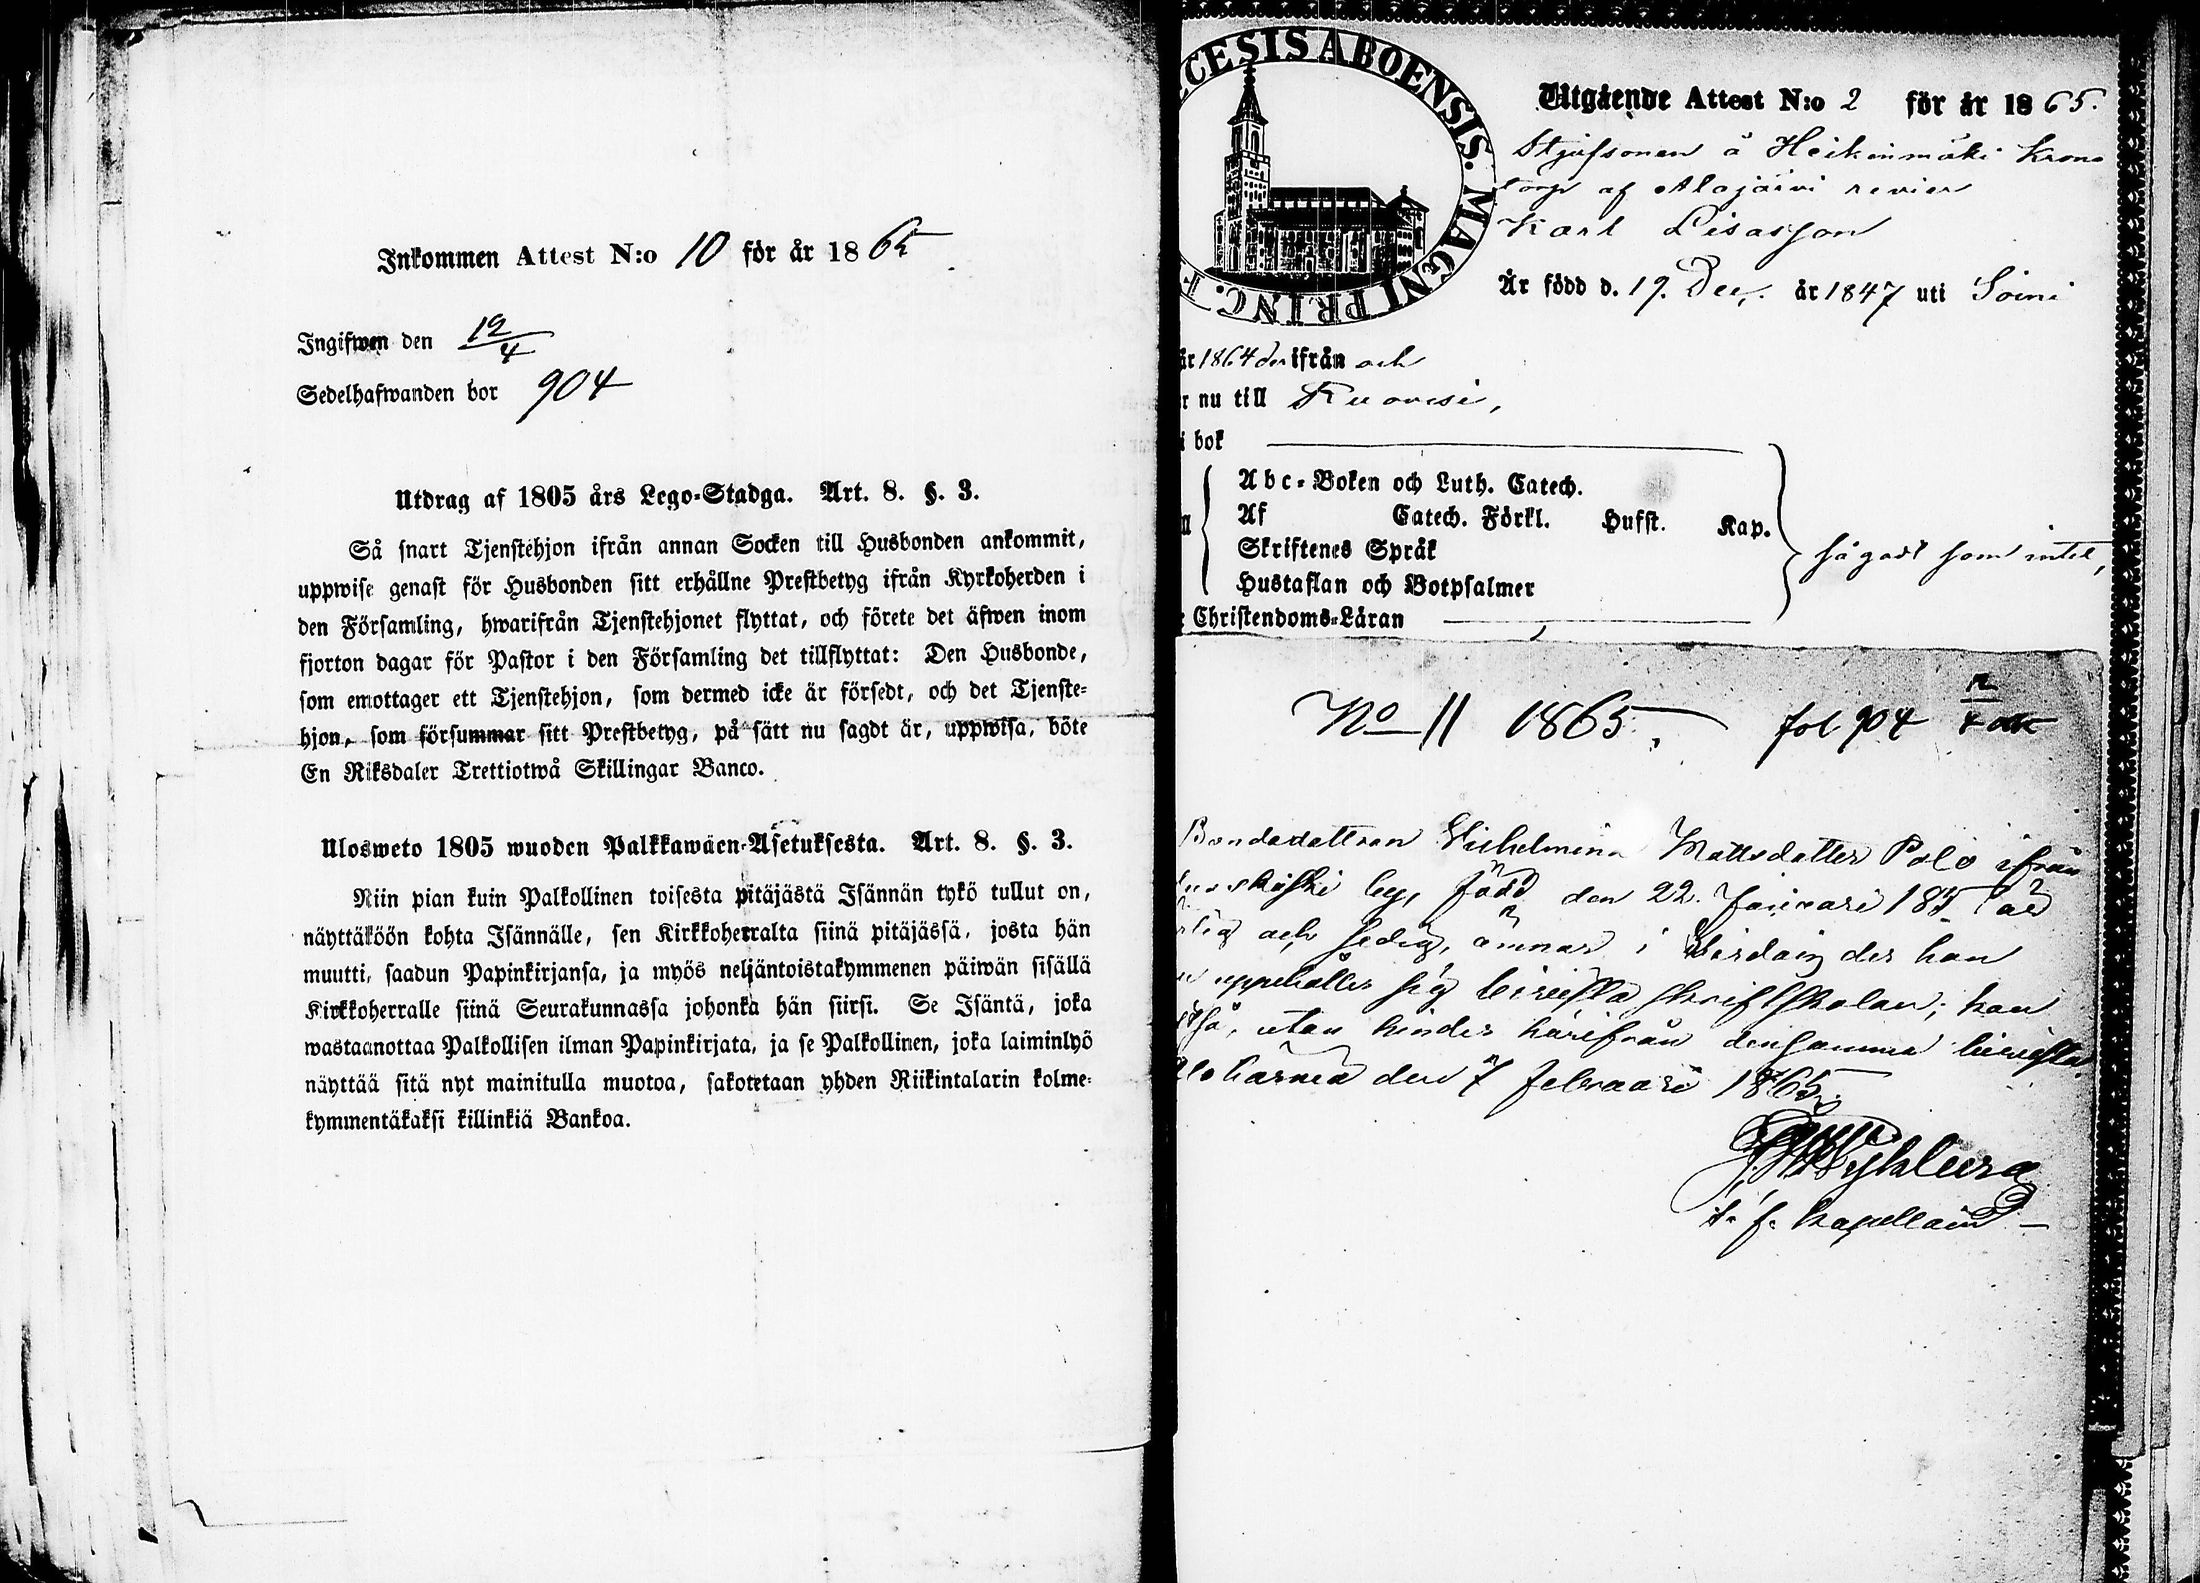 Inkommen Attest N:o 10 för år 1865
Ingifwen den 12/4
Sedelhafwanden bor 904
Utdrag af 1805 års Lego-Stadga. Art. 8. §. 3.
Så snart Tjenstehjon ifrån annan Socken till Husbonden ankommit,
uppwise genast för Husbonden sitt erhållne Prestbetyg ifrån Kyrkoherden i
den Församling, hwarifrån Tjenstehjonet flyttat, och förete det äfwen inom
fjorton dagar för Pastor i den Församling det tillflyttat: Den Husbonde,
som emottager ett Tjenstehjon, som dermed icke är försedt, och det Tjenste-
hjon, som försummar sitt Prestbetyg, på sätt nu sagdt är, uppwisa, böte
En Riksdaler Trettiotwå Skillingar Banco.
Ulosweto 1805 wuoden Palkkawäen-Asetuksesta. Art. 8. §. 3.
Niin pian kuin Palkollinen toisesta pitäjästä Isännän tykö tullut on,
näyttäköön kohta Isännälle, sen Kirkkoherralta siinä pitäjässä, josta hän
muutti, saadun Papinkirjansa, ja myös neljäntoistakymmenen päiwän sisällä
Kirkkoherralle siinä Seurakunnassa johonka hän siirsi. Se Isäntä, joka
wastaanottaa Palkollisen ilman Papinkirjata, ja se Palkollinen, joka laiminlyö
näyttää sitä nyt mainitulla muotoa, sakotetaan yhden Riikintalarin kolme-
kymmentäkaksi killinkiä Bankoa.
CESIS ABOENSIS. MAGNI PRINC. F
Utgående Attest N:o 2 för år 1865.
Styfsonen å Heikinmäki Krono
torp af Alajärvi revier
Karl Lisasson
Är född d. 19. Dec. år 1847 uti Soini
år 1864 der ifrån och
r nu till Ruovesi,
i bok
Abc-Boken och Luth. Catech.
Af Catech. Förkl. Hufst. Kap.
Skriftenes Språk
Hustaflan och Botpsalmer
så godt som intet,
Christendoms-Läran
No 11 1865. fol 904 12/4
Bondedottren Wilhelmina Mattsdotter Polo ifrån
by, född den 22. Januari 185
och ledig, ämnar i Wirdois der hon
uppehåller sig bevista skriftskolan; kan
utan hinder härifrån densamma bevista
Alahärmä den 7 februari 1865.
t. f. kapellan